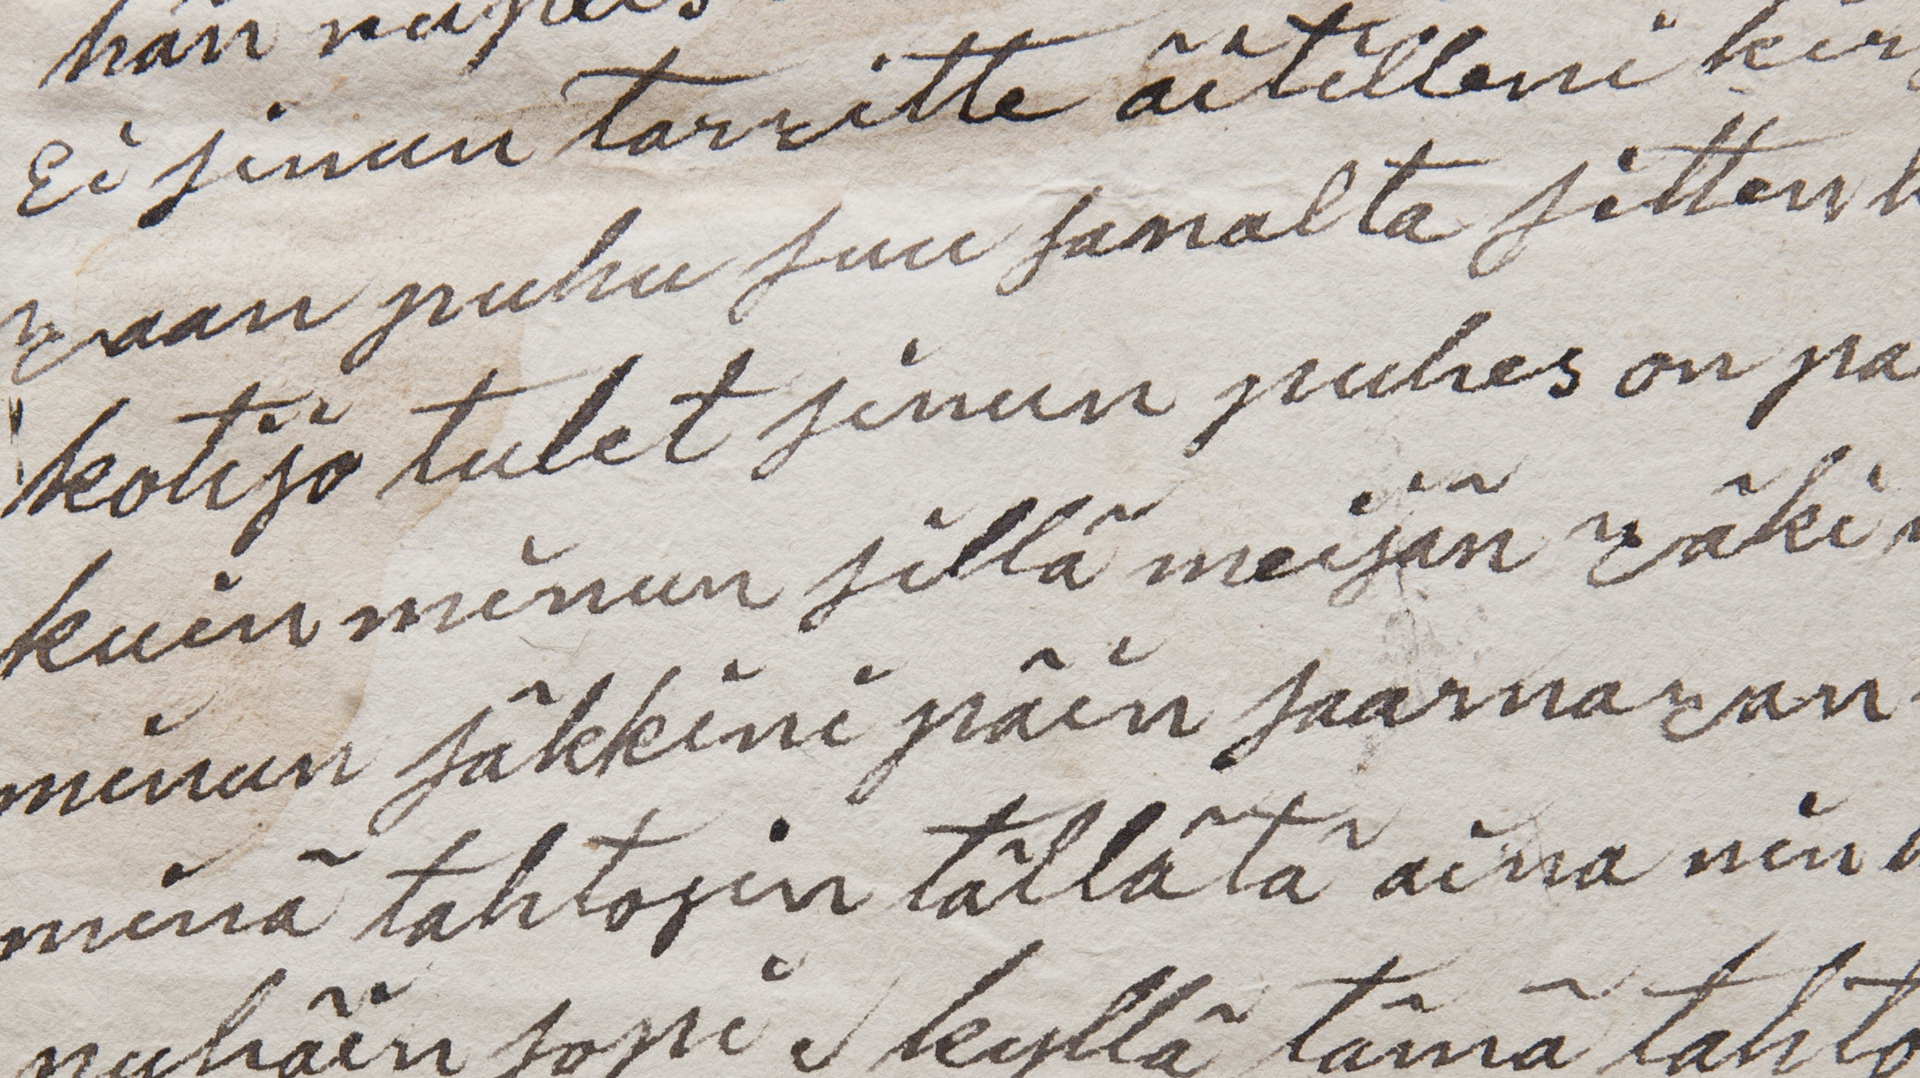 hän
Ei sinun tarvitte äitilleni
vaan puhu suu sanalta sitten
kotijo tulet sinun puhes on
kuin minun sillä meijän väki
minun säkkini päin saarnavan
minä tahtosin tällätä aina niin
pyhäin sopi kyllä tämä tahto